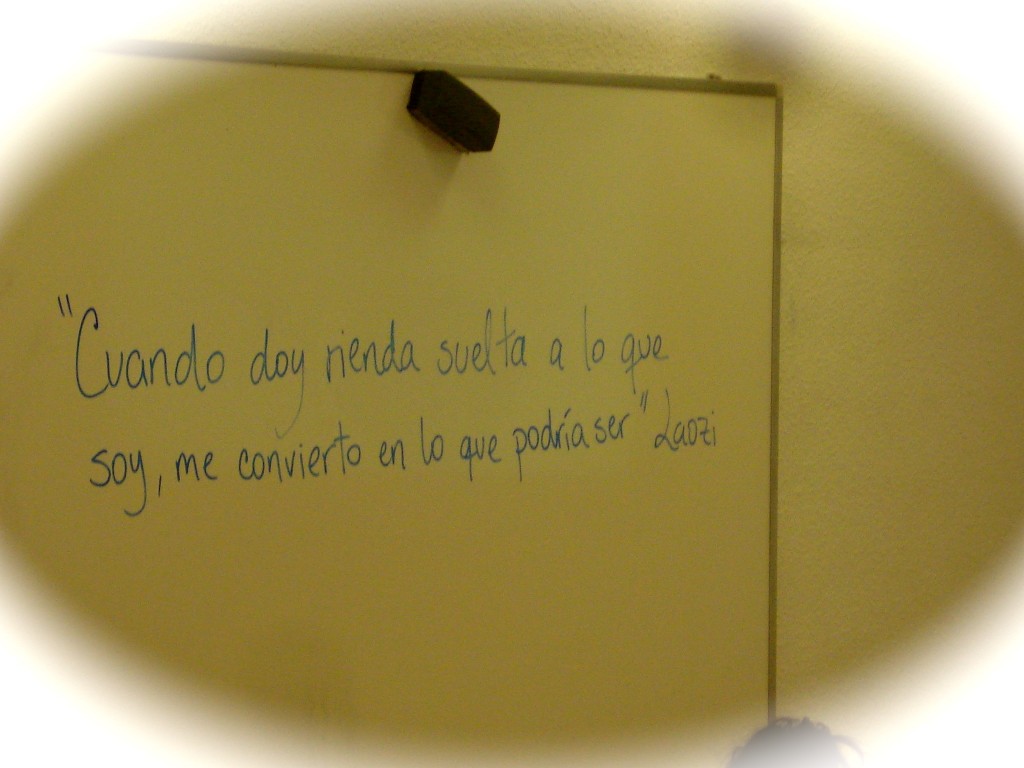 "Cuando doy rienda suelta a lo que
soy, me convierto en lo que podría ser" Laozi